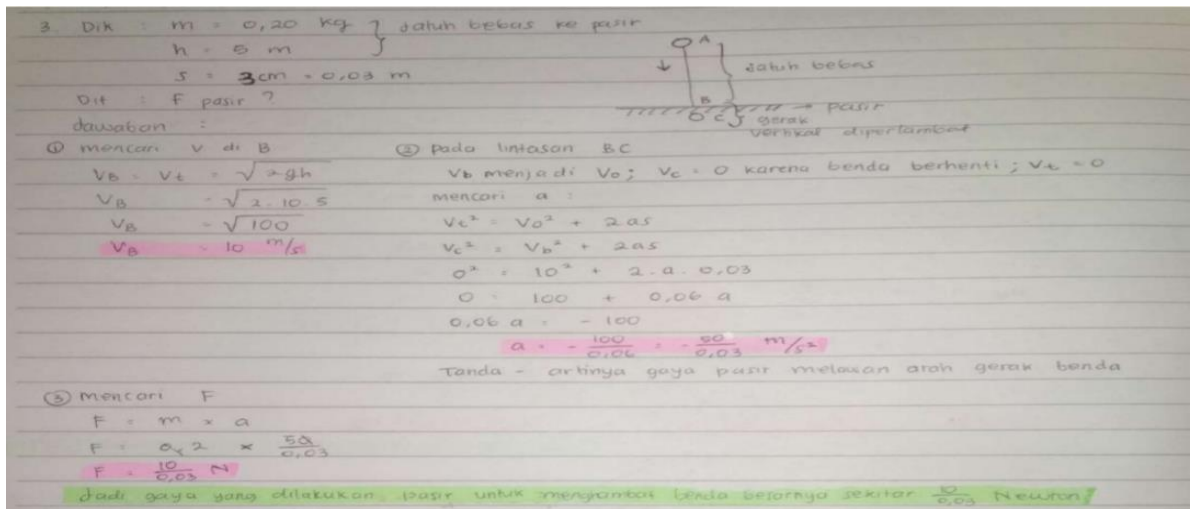 3. Dik : m = 0,20 kg } jatuh bebas ke pasir
h = 5 m
s = 3 cm = 0,03 m
Dit : F pasir ?
Jawaban :
A
jatuh bebas
B
C
pasir
gerak
vertikal diperlambat
① mencari v di B
VB = Vt = √2gh
VB = √2.10.5
VB = √100
VB = 10 m/s
② pada lintasan BC
Vb menjadi Vo; Vc = 0 karena benda berhenti ; Vt = 0
mencari a :
Vt² = Vo² + 2as
Vc² = Vb² + 2as
0² = 10² + 2.a.0,03
0 = 100 + 0,06 a
0,06 a = - 100
a = - 100/0,06 = - 50/0,03 m/s²
Tanda - artinya gaya pasir melawan arah gerak benda
③ mencari F
F = m × a
F = 0,2 × 50/0,03
F = 10/0,03 N
Jadi gaya yang dilakukan pasir untuk menghambat benda besarnya sekitar 10/0,03 Newton